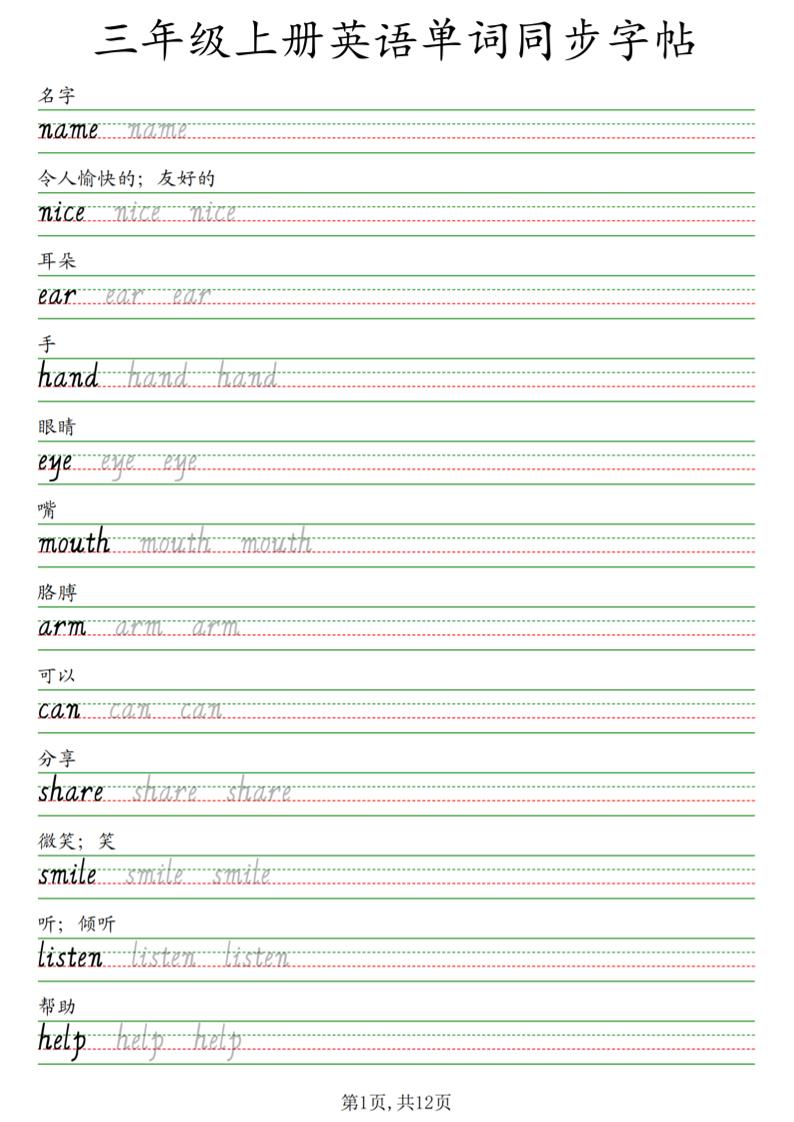 三年级上册英语单词同步字帖
名字
name name
令人愉快的；友好的
nice nice nice
耳朵
ear ear ear
手
hand hand hand
眼睛
eye eye eye
嘴
mouth mouth mouth
胳膊
arm arm arm
可以
can can can
分享
share share share
微笑；笑
smile smile smile
听；倾听
listen listen listen
帮助
help help help
第1页,共12页